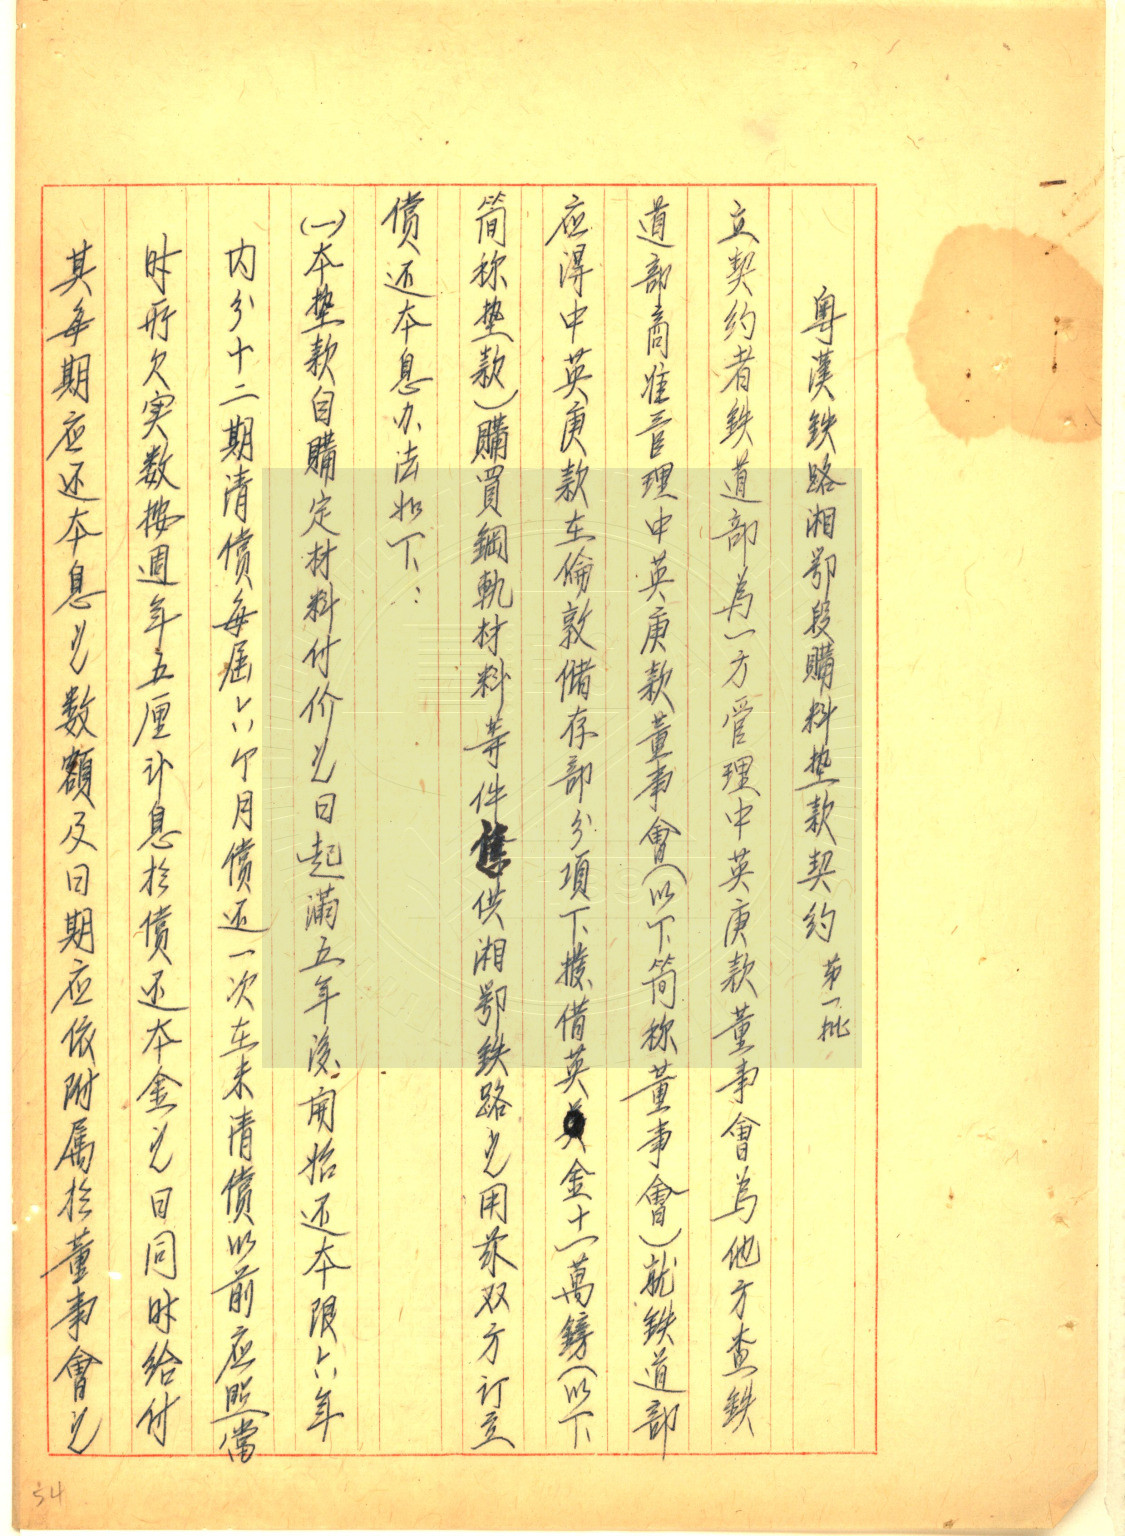 粤漢鉄路湘鄂段購料垫款契约 第一批
立契约者鉄道部為一方管理中英庚款董事會為他方查鉄
道部商准管理中英庚款董事會(以下简称董事會)就鉄道部
应得中英庚款在倫敦儲存部分項下撥借英金十一萬鎊(以下
简称垫款)購買鋼軌材料等件售供湘鄂鉄路之用茲双方订立
償还本息办法如下：
(一)本垫款自購定材料付价之日起满五年後開始还本限六年
内分十二期清償每屆六个月償还一次在未清償以前应照當
时所欠实数按週年五厘计息於償还本金之日同时给付
其每期应还本息之数额及日期应依附属於董事會之
54